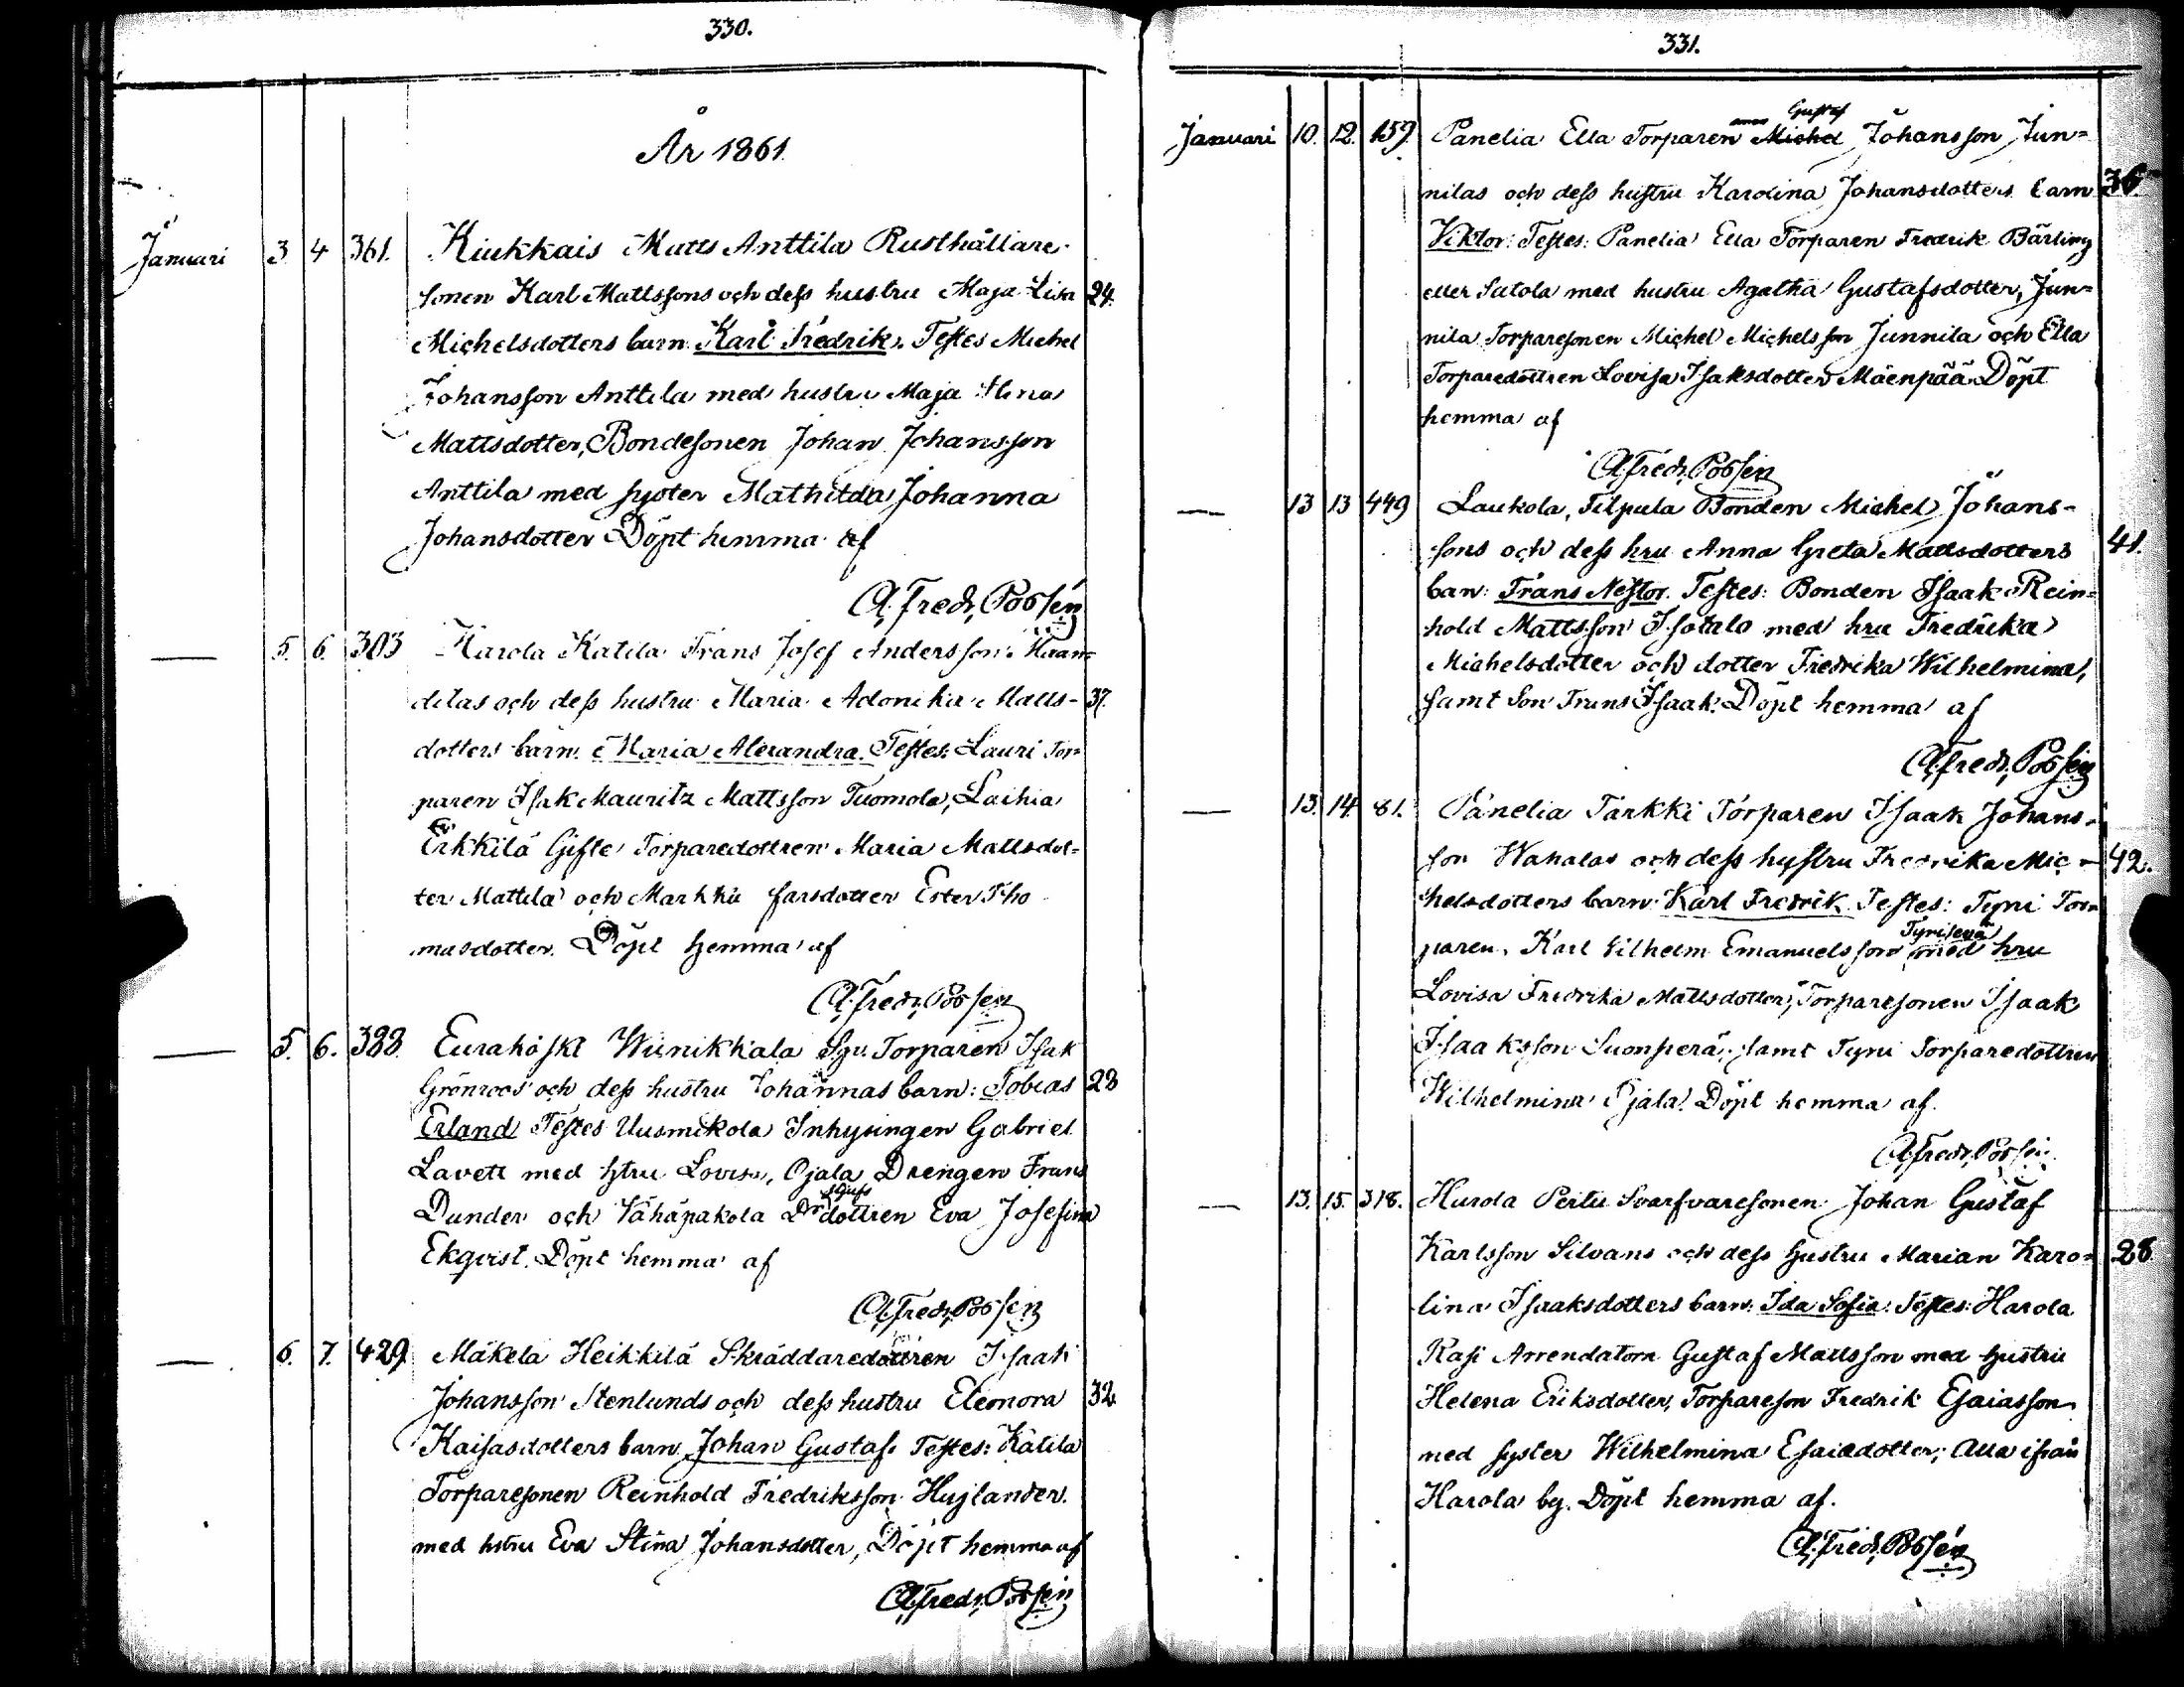 330.
År 1861.
Januari 3 4 361. Kiukkais Matts Anttila Rusthållare
sonen Karl Mattssons och dess hustru Maja Lisa 24.
Michelsdotters barn: Karl Fredrik. Testes Michel
Johansson Anttila med hustru Maja Stina
Mattsdotter, Bondesonen Johan Johansson
Anttila med syster Mathilda Johanna
Johansdotter Döpt hemma af
A. Fredr. Possén
— 5. 6. 303 Harola Katila Frans Josef Andersson
dilas och dess hustru Maria Adonika Matts- 37.
dotters barn. Maria Alexandra. Testes: Lauri Tor-
paren Isak Mauritz Mattsson Tuomola, Laihia
Erkkilä Gifte Torparedottren Maria Mattsdot-
ter Mattila och Markku farsdotter Ester Tho
masdotter. Döpt hemma af
A. Fredr. Possén
— 5. 6. 388. Euraåski Wiinikkala Torparen Isak
Grönroos och dess hustru Johannas barn: Tobias 28
Erland Testes Uusmikola Inhysingen Gabriel
Lavett med hstru Lovisa, Ojala Drengen Frans
Dunder och Vähäpakola dottren Eva Josefina
Ekqvist. Döpt hemma af
A. Fredr. Possén
— 6. 7. 429. Mäkelä Heikkilä Skräddaredottren Isaak
Johansson Stenlunds och dess hustru Eleonora 32.
Kaisasdotters barn Johan Gustaf. Testes: Katila
Torparesonen Reinhold Fredriksson Hujlander.
med hstru Eva Stina Johansdotter, Döpt hemma af
A. Fredr. Possén
331.
Gustaf
Januari 10. 12. 159. Panelia Ella Torparen Michel Johansson Jun-
nilas och dess hustru Karolina Johansdotters barn 36.
Viktor: Testes: Panelia Ella Torparen Fredrik Bärling
eller Satola med hustru Agatha Gustafsdotter, Jun-
nila Torparesonen Michel Michelsson Junnila och Ella
Torparedottren Lovisa Isaksdotter Mäenpää. Döpt
hemma af
A. Fredr. Possén
— 13 13 449 Laukola, Filpula Bonden Michel Johans-
sons och dess hru Anna Greta Mattsdotters 41.
barn: Frans Nestor. Testes: Bonden Isaak Rein-
hold Mattsson Isotalo med hru Fredrika
Michelsdotter och dotter Fredrika Wilhelmina,
samt Son Frans Isaak. Döpt hemma af
A. Fredr. Possén
— 13. 14. 81. Panelia Tarkki Torparen Isaak Johans-
son Wahalas och dess hustru Fredrika Mic- 42.
helsdotters barn: Karl Fredrik. Testes: Tyni Tor-
paren. Karl Vilhelm Emanuelsson Tynisevä med hru
Lovisa Fredrika Mattsdotter, Torparesonen Isaak
Isaaksson Suonperä, samt Tyni Torparedottren
Wilhelmina Ojala. Döpt hemma af.
A. Fredr. Possén
— 13. 15. 318. Harola Perttu Svarfvaresonen Johan Gustaf
Karlsson Silvans och dess hustru Marian Karo- 28.
lina Isaaksdotters barn: Ida Sofia: Testes: Harola
Kasi Arrendatorn Gustaf Mattsson med hustru
Helena Eriksdotter, Torpareson Fredrik Esaiasson
med syster Wilhelmina Esaiædotter; Alla ifrån
Harola by. Döpt hemma af.
A. Fredr. Possén